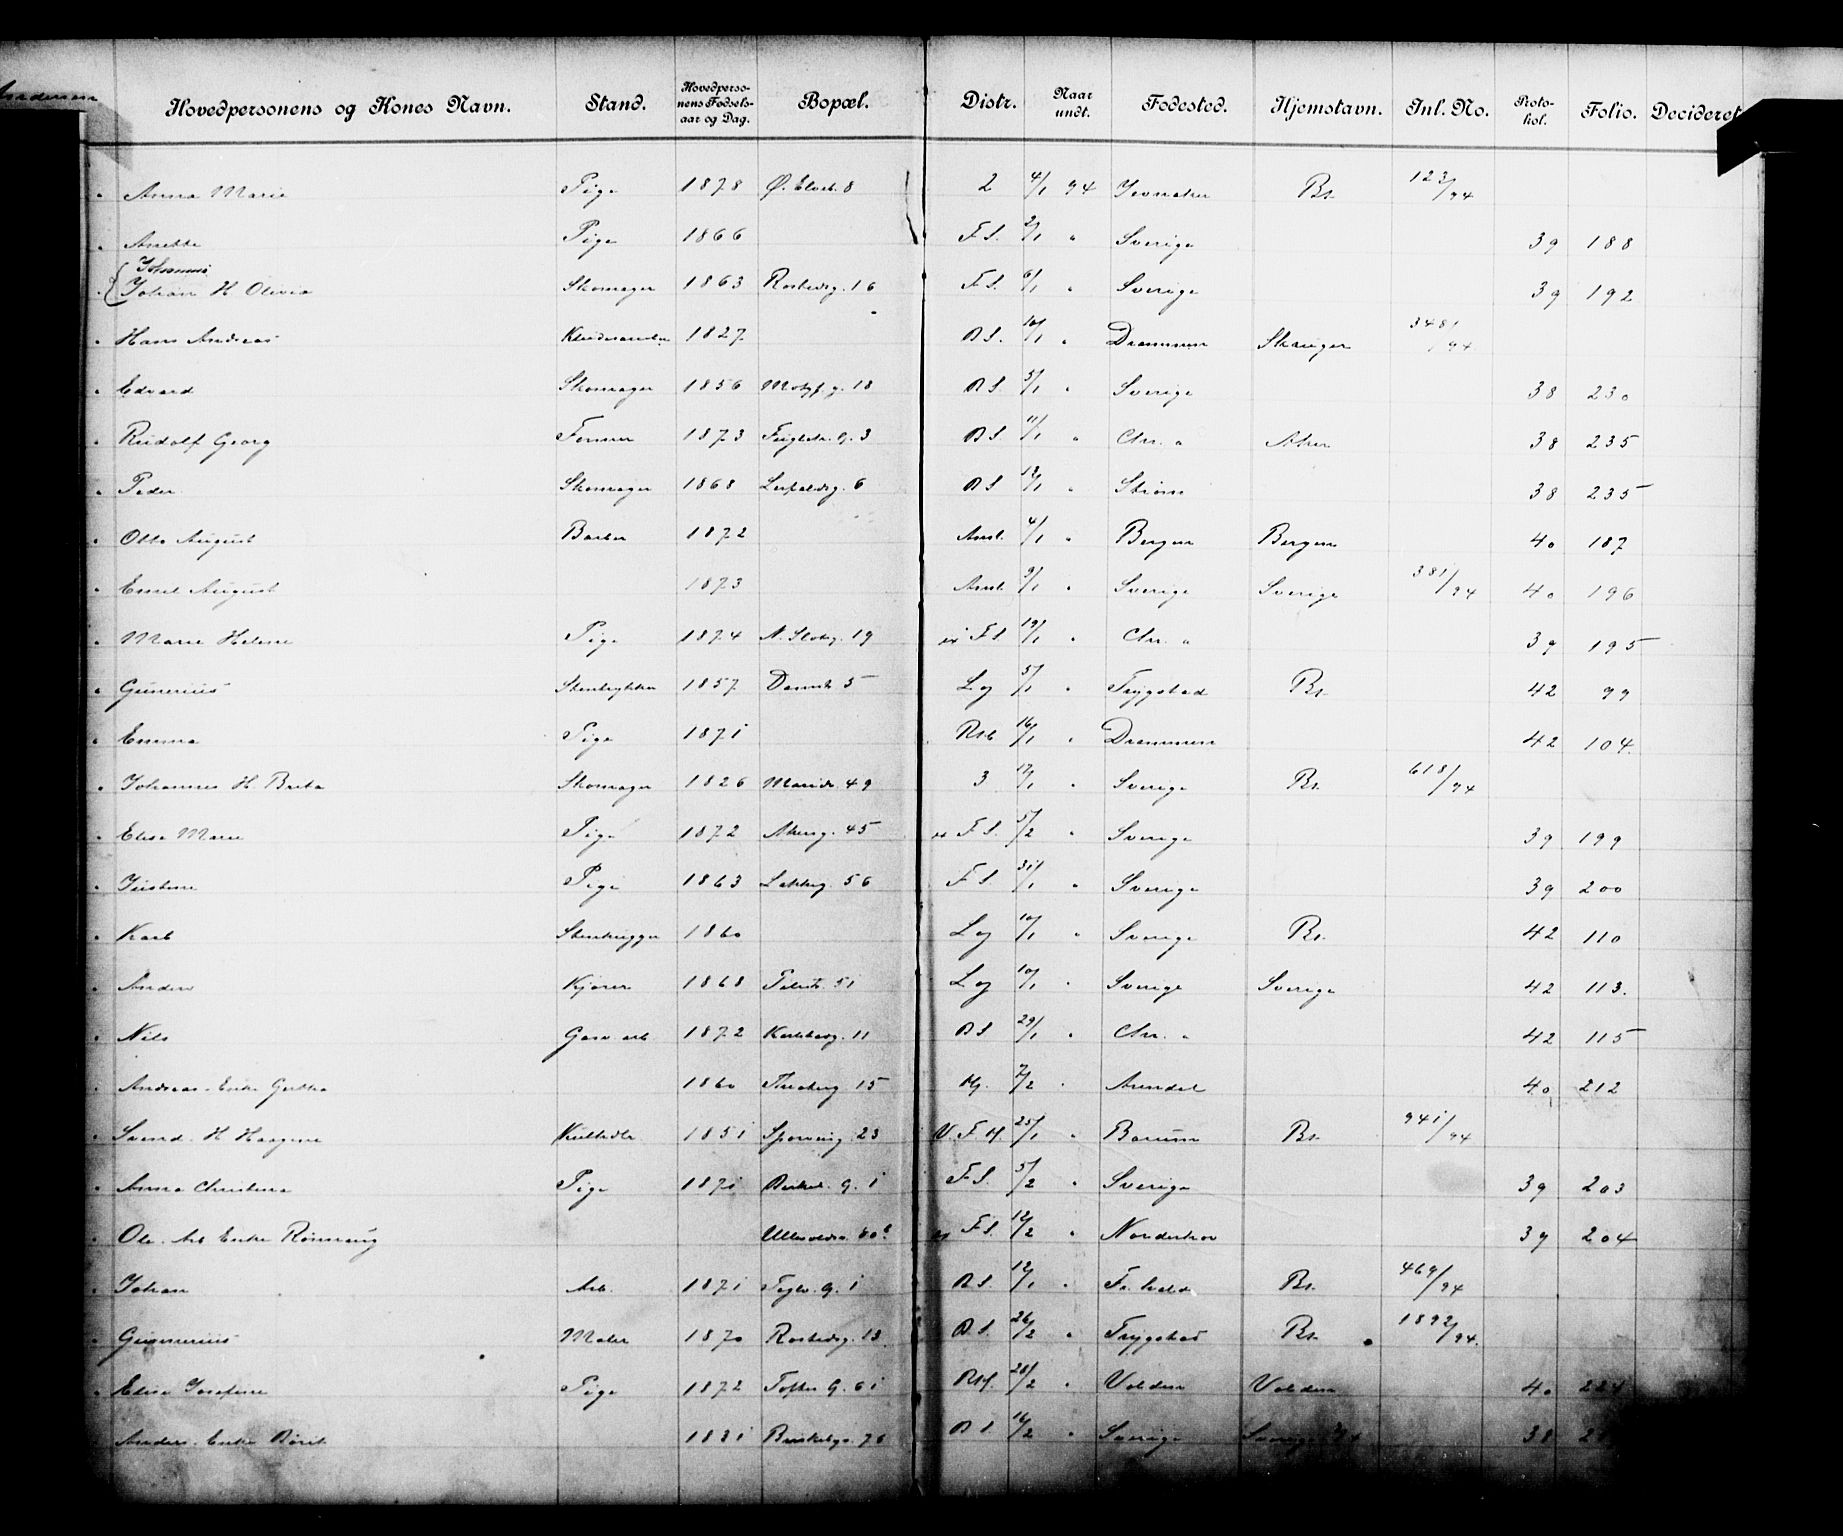 Andersen
Hovedpersonens og Kones Navn. Stand. Hovedpersonens Fødselsaar og Dag. Bopæl. Distr. Naar undt. Fødested. Hjemstavn. Inl. No. Protokol. Folio. Decideret
" Anna Marie Pige 1878 Ø. Elveb. 8 2 4/1 94 Jevnaker Bs. 123/94
" Anette Pige 1866 F.S. 2/1 " Sverige 39 188
Johannes
" Johan H Olivia Skomager 1863 Rostedsg. 16 F.S. 6/1 " Sverige 39 192
" Hans Andreas 1827 BS. 10/1 " Drammen Skauger 348/94
" Edvard Skomager 1856 Motzf. g. 18 BS 5/1 " Sverige 38 230
" Rudolf Georg Former 1873 G. 3 BS. 11/1 " Chr. a Aker 38 235
" Peder Skomager 1868 6 BS 12/1 " Strøm 38 235
" Otto August Barber 1872 Anst. 4/1 " Bergen Bergen 40 187
" Emil August 1873 Anst. 9/1 " Sverige Sverige 381/94 40 196
" Marie Helene Pige 1874 N. Slotsg. 19 F.S. 19/1 " Chr. a 39 195
" Gunerius 1857 5 Lg 5/1 " Trygstad Bs. 42 99
" Emma Pige 1871 16/1 " Drammen 42 104
" Johannes H. Brita Skomager 1826 Marids. 49 3 17/1 " Sverige Bs. 618/94
" Elise Marie Pige 1872 Akersg. 45 F.S. 5/2 " Sverige 39 199
" Justine Pige 1863 Lakkeg. 56 F.S. 31/1 " Sverige 39 200
" Karl Stenhugger 1860 Lg 10/1 " Sverige Bs. 42 110
" Anders Kjører 1868 51 Lg 10/1 " Sverige Sverige 42 113.
" Nils Garv. arb 1872 Karlsborg. 11 BS 29/1 " Chr. a 42 115
" Andreas. Enke Gertha 1860 15 7/2 " Arendal 40 212
" Svend. H Haagine 1851 23 V.F.H. 25/1 " Bærum Bs. 941/94
" Anna Christina Pige 1871 G. 1 F.S. 5/2 " Sverige 39 203
" Ole. Arb Enke Rønnaug Ullevoldsv. 80 F.S. 12/2 " Norderhov 39 204
" Johan Arb. 1871 Teglv. G. 1 BS. 12/1 " Fr. hald Bs. 469/94
" Gunnerius Maler 1870 Rostedsg. 13 BS. 26/2 " Trygstad Bs. 1892/94.
" Elise Josefine Pige 1872 Toftes G. 61 28/2 " Volden Volden 40 224
Anders. Enke Børit 1831 76 BS 16/2 " Sverige Sverige 38